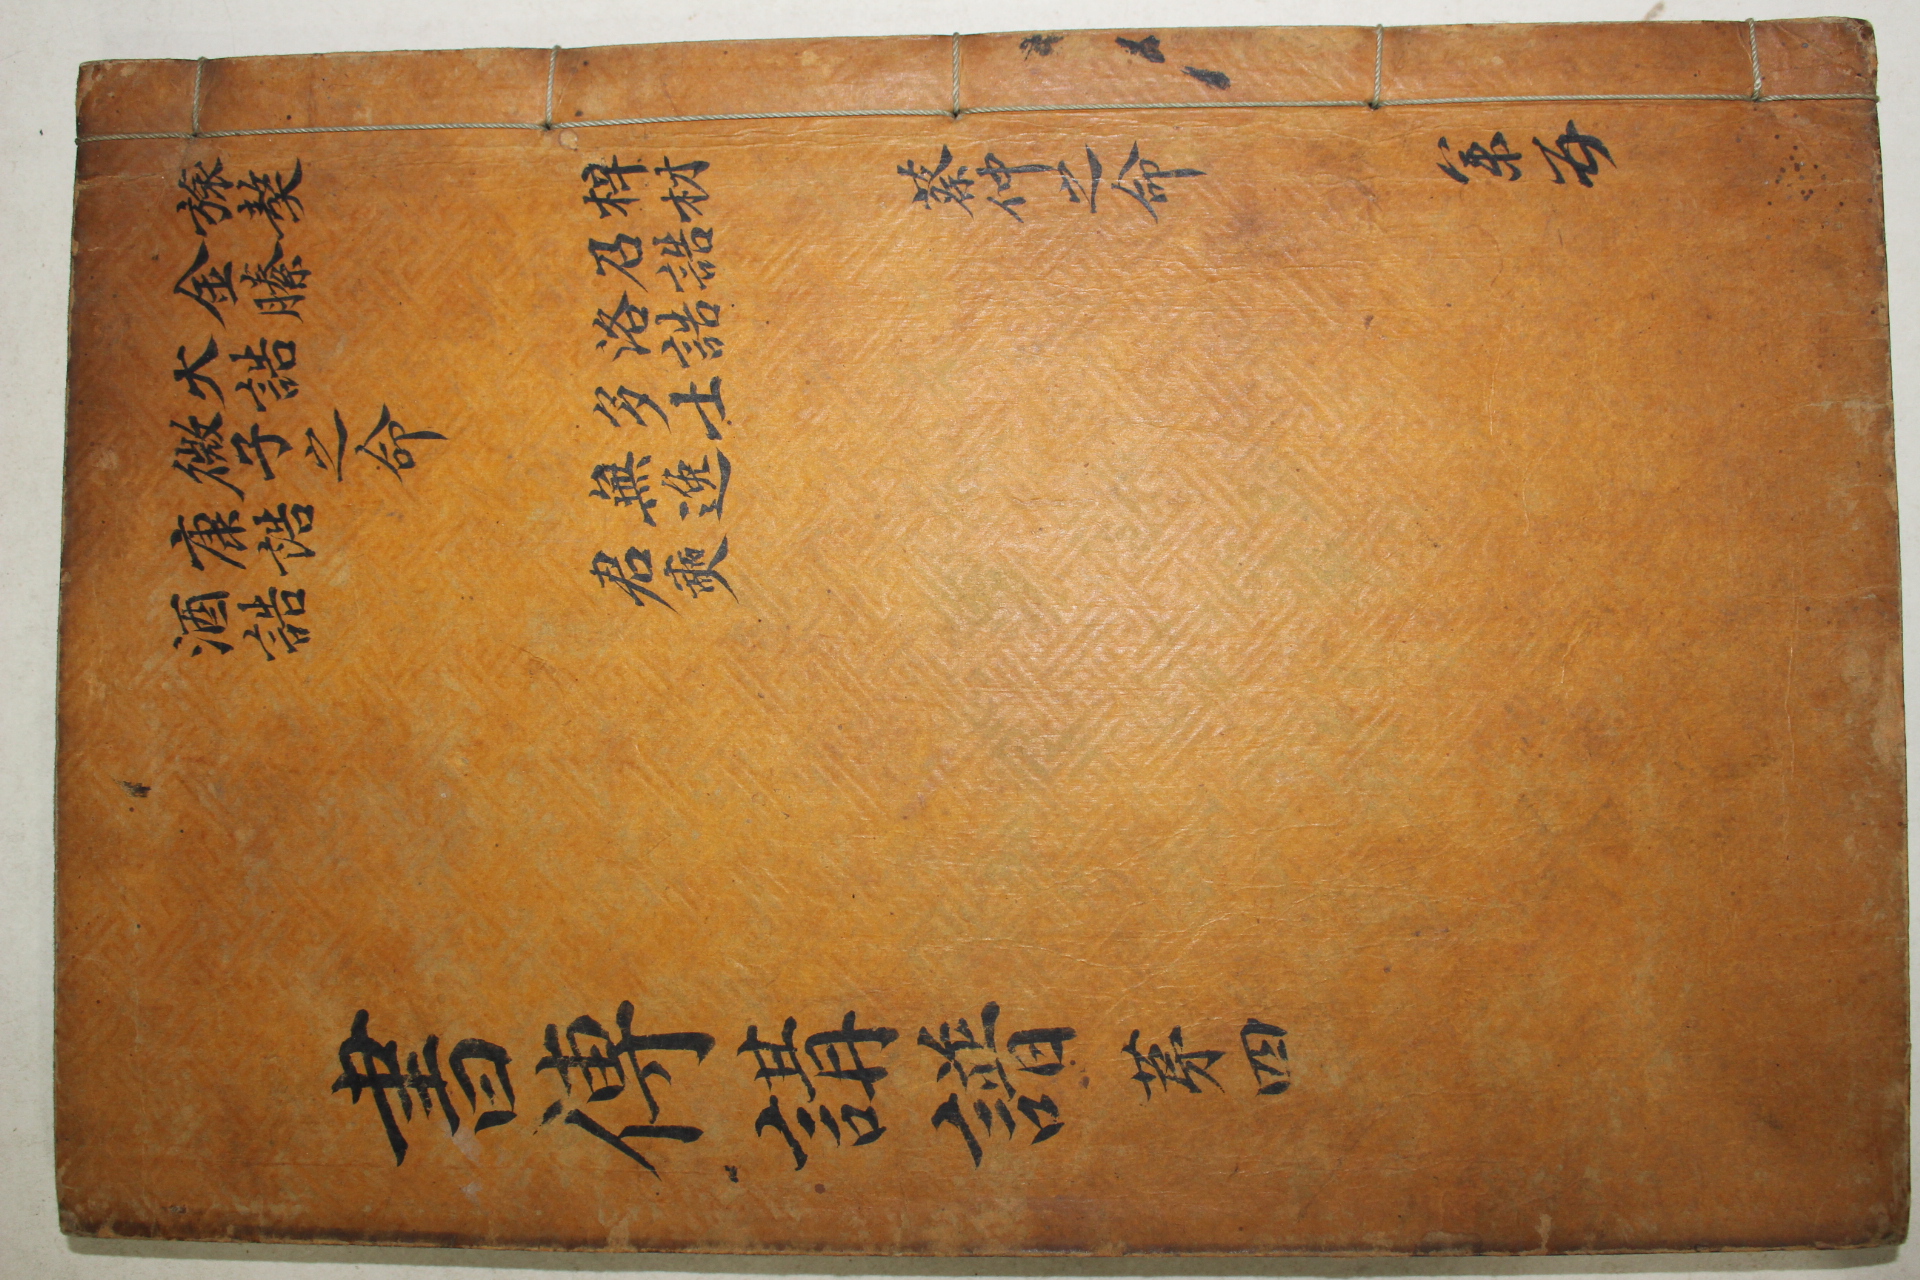 旅獒
金縢
大誥
微子之命
康誥
酒誥
梓材
召誥
洛誥
多士
無逸
君奭
蔡仲之命
五
書傳講譜 第四